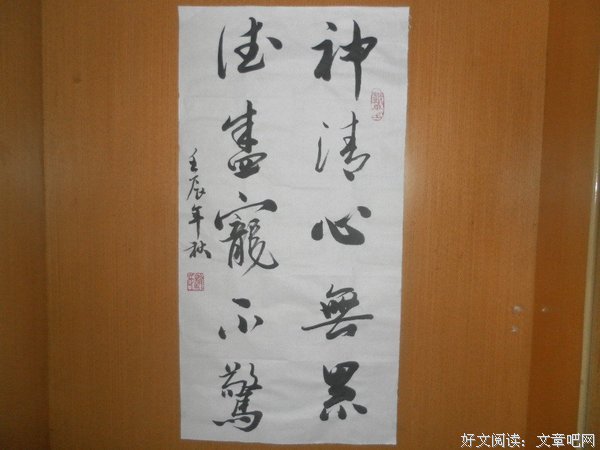 神清心無累
德盛寵不驚
壬辰年秋
好文阅读：文章吧网